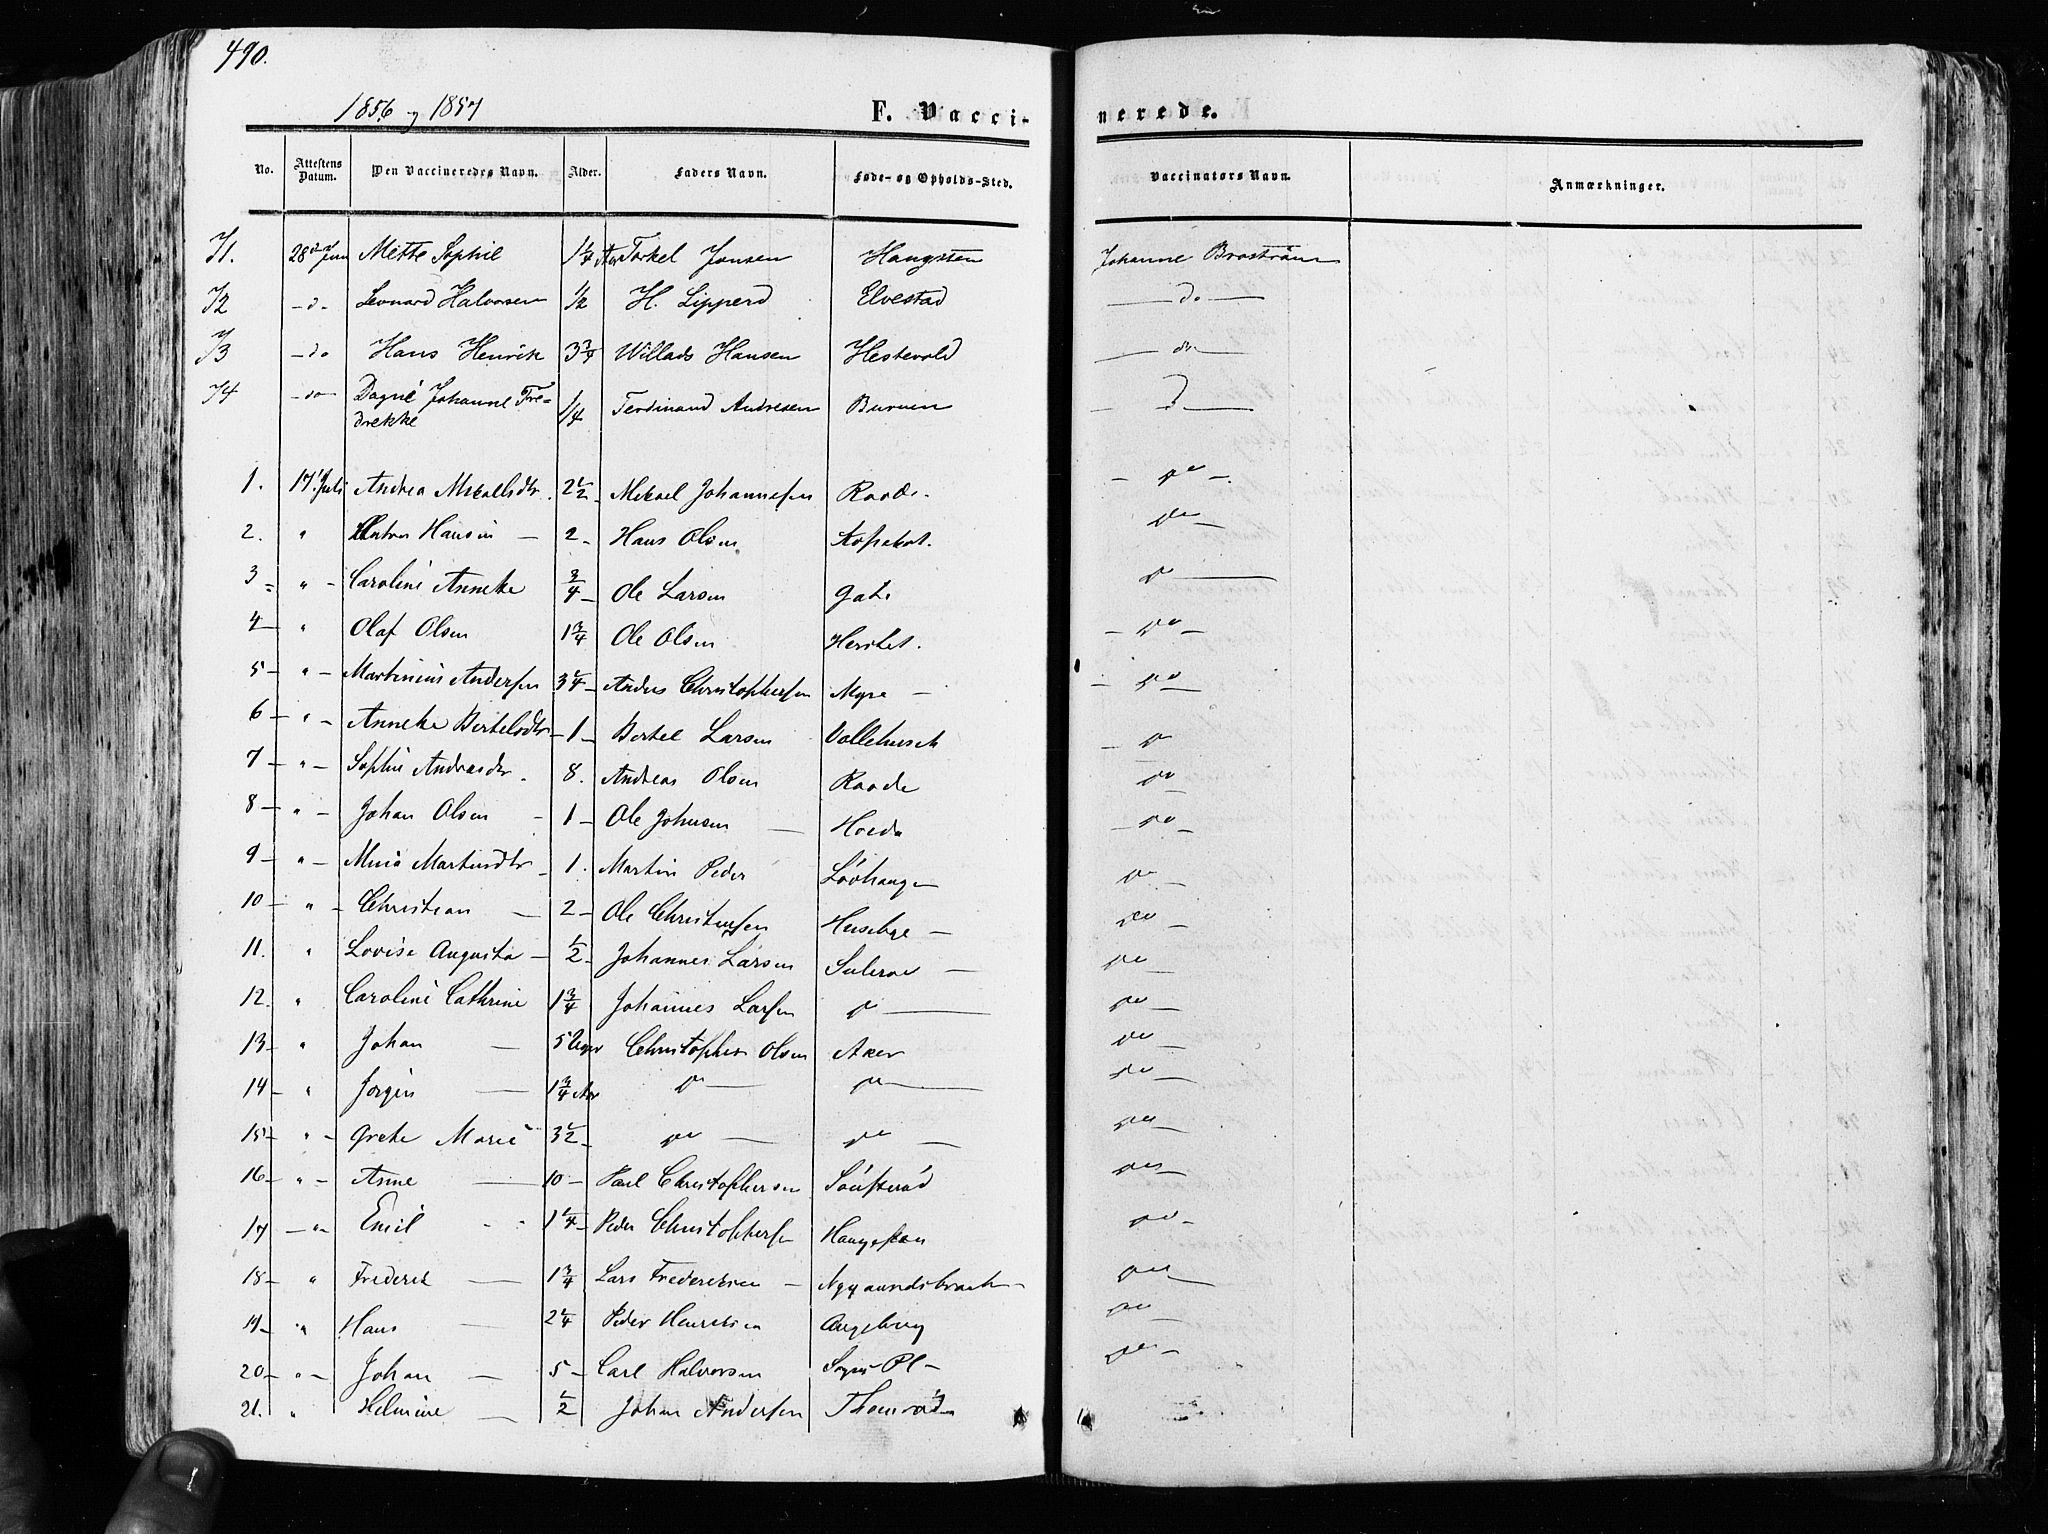 490.
1856 og 1857
F. Vacci-
nerede.
No. Attestens Datum. Den Vaccineredes Navn. Alder. Faders Navn. Føde- og Opholds-Sted. Vaccinators Navn. Anmærkninger.
71. 28de Juni Mette Sophie 1 1/4 Aar Torkel Jensen Haugsten Johanne Broström
72 - do - Leonard Halvorsen 1/2 H. Lipperd Elvestad do
73 - do Hans Henrik 3 3/4 Willads Hansen Hestevold do
74 - do - Dagne Johanne Fre-
drekke 1/4 Ferdinand Andresen Buruen do
1. 17 Juli Andrea Mikaelsdtr. 2 1/2 Mikael Johannesen Raade. - do -
2. " Hansen - 2 - Hans Olsen do
3 " - Caroline Anneke 3/4 - Ole Larsen Gate do
4 - " Olaf Olsen 1 3/4 Ole Olsen - do -
5 - " - Martinius Andersen 3 1/4 - Anders Christophersen Myre - - do -
6 - " - Anneke Bertelsdtr - 1 - Bertel Larsen - do
7 - " - Sophie Andreasdtr. 8. Andreas Olsen Raade do
8 - " - Johan Olsen - 1 - Ole Johnsen - - do -
9 - " - Martinsdtr - 1. Martin Peder Lövhaugen do -
10 - " - Christian - 2 - Ole Christensen Husebye - do -
11. " Lovise Augusta - 1/2 - Johannes Larsen Sulerae - do -
12. " Caroline Cathrine 1 3/4 Johannes Larsen do - do -
13 - " Johan - 5 Uger Christopher Olsen Aker do -
14 - " Jörgen - 1 3/4 Aar do - do - do -
15 - " - Grete Marie 3 1/2 - do - do - do -
16 - " - Anne - 10 - Paul Christophersen do -
17 - " - Emil - 1 1/4 - Peder Christophersen Haugsten do -
18 - " Frederik - 1 3/4 Lars Frederiksen - do -
19 - " Hans - 2 1/4 Peder Henriksen Augeberg do -
20 - " - Johan - 5 - Carl Halvorsen Sogne Pl - do -
21. " Helmine - 1/2 Johan Andersen Thomröd